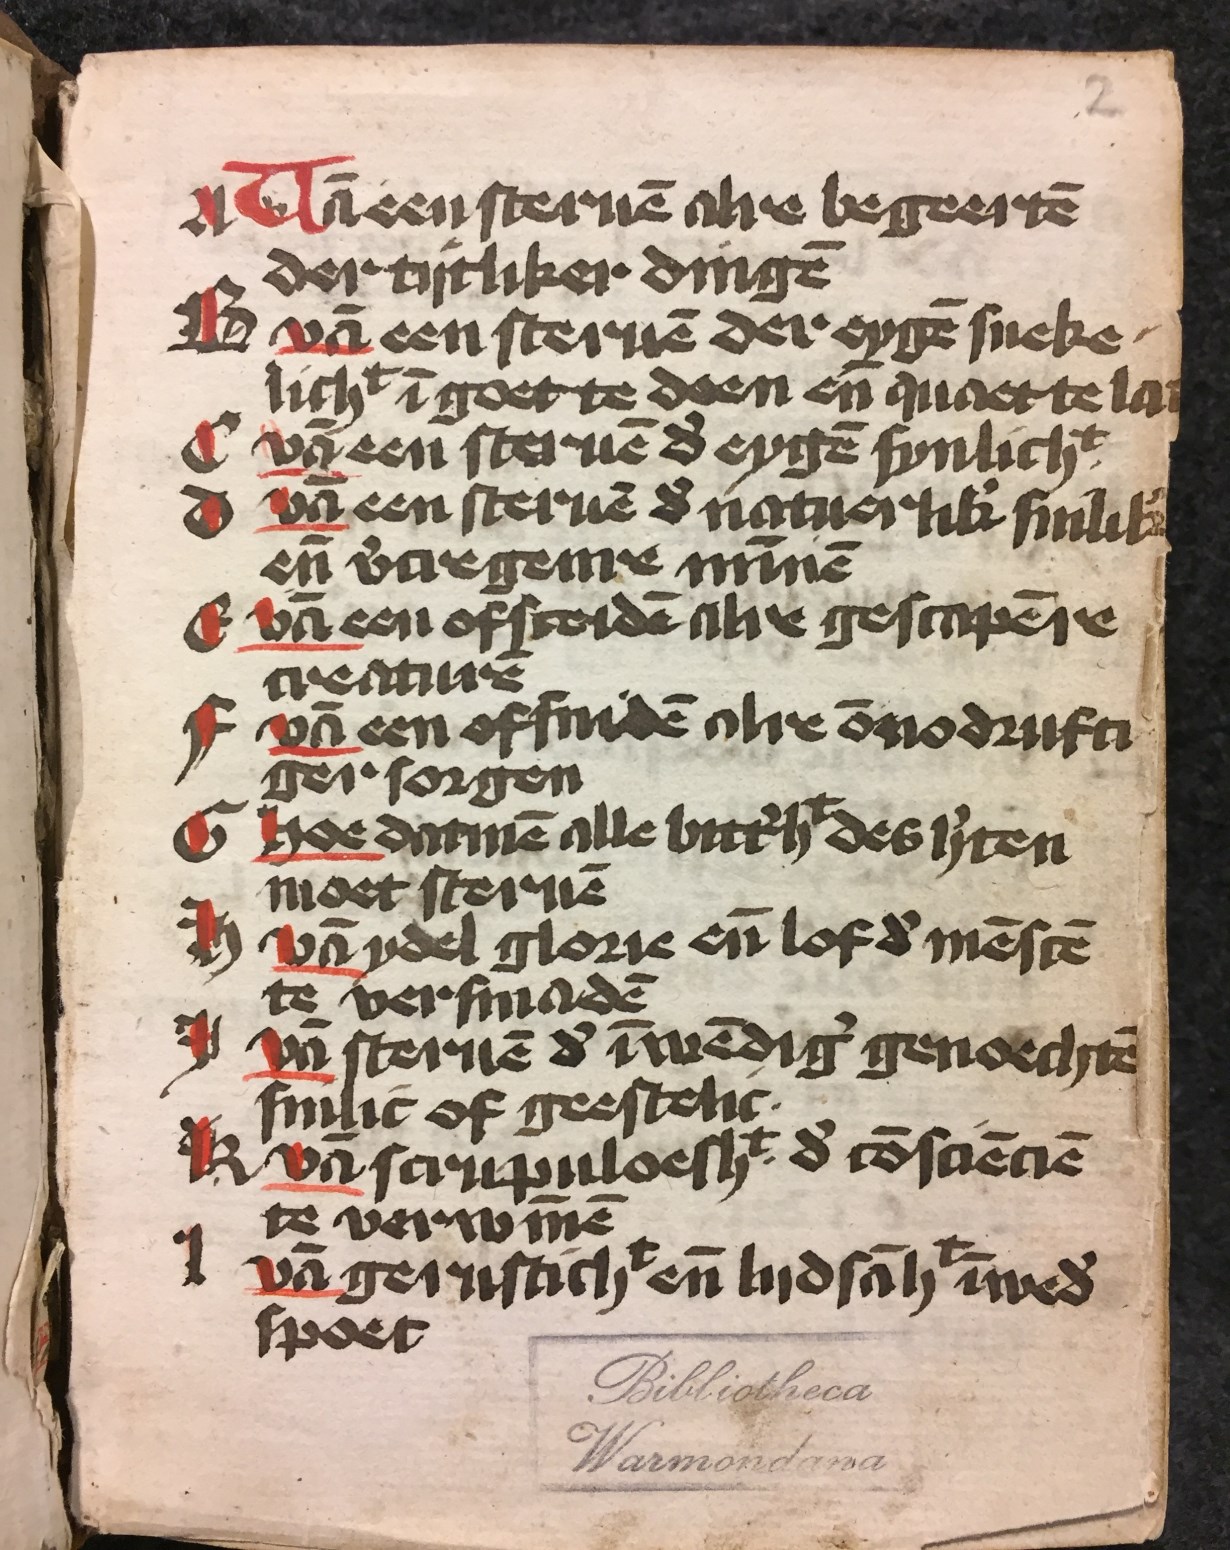 2
A Vā een steruē alre begeertē
der tijtliker dingē
B vā een steruē der eygē sueke
lichᵗ ī goet te doen eñ quaet te lat
C vā een steruē d' eygē synlichᵗ
D vā een steruē d' natuerlik' sinlik'
eñ v'cregenre mīnē
E vā een ofsceidē alre gescapēre
creaturē
F vā een ofsnidē alre ōnodrufti
ger sorgen
G hoe datmē alle bitt'hᵗ des h'ten
moet steruē
H vā ydel glorie eñ lof d' mēscē
te versmadē
I vā steruē d' īwēdig' genoechtē
sinlic of geestelic
K vā scrupuloeshᵗ d' cōsciēciē
te verwīnē
l vā gernstichᵗ eñ lijdsāhᵗ ī wed'
spoet
Bibliotheca
Warmondana